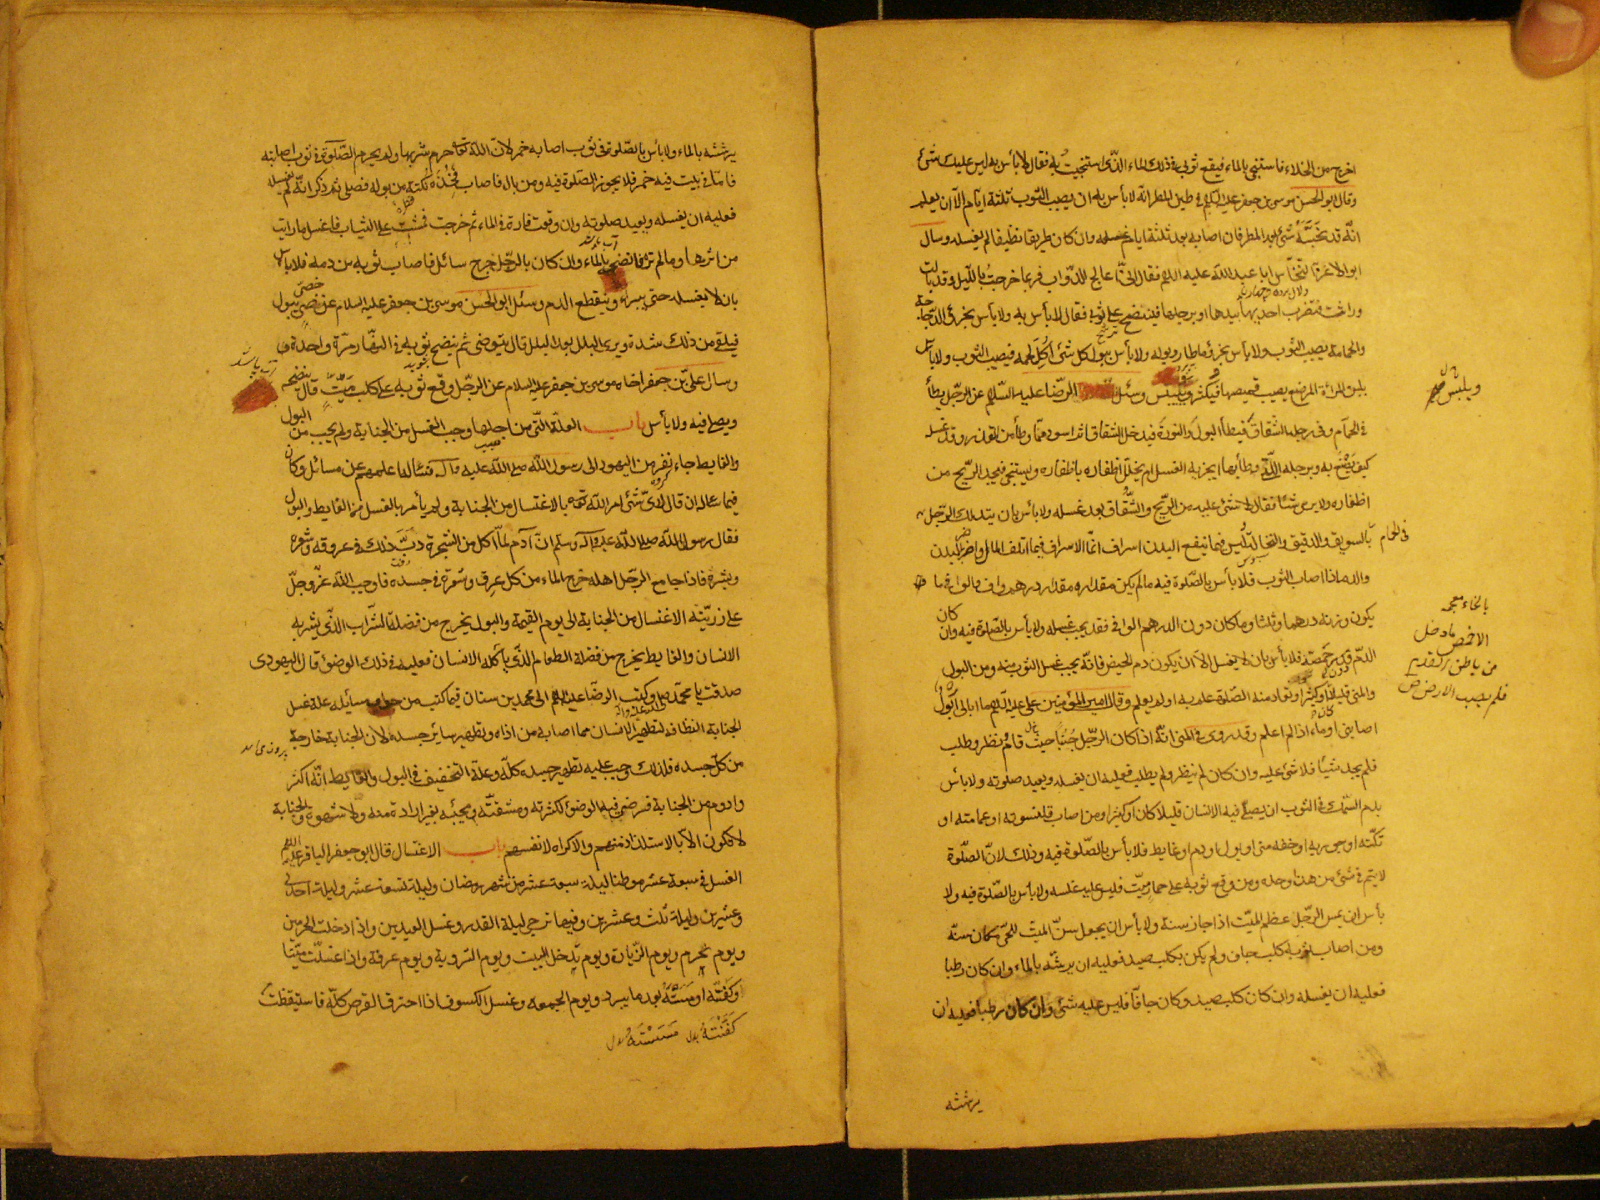 اخرج من الخلاء فاستنجي بالماء فيقع ثوبي في ذلك الماء الذي استنجيت به فقال لا بأس به ليس عليك شئ
وقال ابو الحسن موسى بن جعفر عليه السلم في طين المطر انه لا بأس به ان يصيب الثوب ثلثة ايام الا ان يعلم
انه قد نجسه شئ بعد المطر فان اصابه بعد ثلثة ايام غسله وان كان طريقا نظيفا لم يغسله وسال
ابو الاغر النخاس ابا عبد الله عليه السلم فقال اني اعالج الدواب فربما خرجت بالليل وقد بالت
وراثت فتضرب احديها بيدها او برجلها فينضح على ثوبي فقال لا بأس به ولا بأس بخرء الدجاجة
والحمامة يصيب الثوب ولا بأس بخرء ما طار وبوله ولا بأس ببول كل شئ اكل لحمه فيصيب الثوب ولا بأس
بلبن المرأة المرضع يصيب قميصها فيكثر وييبس وسئل الرضا عليه السلام عن الرجل يطأ
في الحمام وفي رجله الشقاق فيطأ البول والنورة فيدخل الشقاق اثر اسود مما وطأ من القذر وقد غسله
كيف يصنع به وبرجله التي وطأ بها ايجزيه الغسل ام يخلل اظفاره باظفاره ويستنجي فيجد الريح من
اظفاره ولا يرى شئا فقال لا شئ عليه من الريح والشقاق بعد غسله ولا بأس بان يتدلك الرجل
في الحمام بالسويق والدقيق والنخالة ليس فيما ينفع البدن اسراف انما الاسراف فيما اتلف المال واضر بالبدن
والدم اذا اصاب الثوب فلا بأس بالصلوة فيه ما لم يكن مقداره مقدار درهم واف والوافي ما
يكون وزنه درهما وثلثا وما كان دون الدرهم الوافي فقد يجب غسله ولا بأس بالصلوة فيه وان كان
الدم دون حمصة فلا بأس بان لا يغسل الا ان يكون دم الحيض فانه يجب غسل الثوب منه ومن البول
والمني قليلا او كثيرا وتعاد منه الصلوة علم به او لم يعلم وقال امير المؤمنين علي عليه السلم ما ابالي أبول
اصابني او ماء اذا لم اعلم وقد روي في المني انه اذا كان الرجل جنبا حيث قام ونظر وطلب
فلم يجد شيئا فلا شئ عليه وان كان لم ينظر ولم يطلب فعليه ان يغسله ويعيد صلوته ولا بأس
بدم السمك في الثوب ان يصلي فيه الانسان قليلا كان او كثيرا ومن اصاب قلنسوته او عمامته او
تكته او جوربه او خفه مني او بول او دم او غايط فلا بأس بالصلوة فيه وذلك لان الصلوة
لا يتم في شئ من هذا وحده ومن وقع ثوبه على حمار ميت فليس عليه غسله ولا بأس بالصلوة فيه ولا
بأس ان يمس الرجل عظم الميت اذا جاز سنة ولا بأس ان يجعل سن الميت للحي مكان سنه
ومن اصاب ثوبه كلب جاف ولم يكن بكلب صيد فعليه ان يرشه بالماء وان كان رطبا
فعليه ان يغسله وان كان كلب صيد وكان جافا فليس عليه شئ وان كان رطبا فعليه ان
يرششه
بالخاء معجمه
الاخمص ما دخل
من باطن القدم
فلم يصب الارض
يرششه بالماء ولا بأس بالصلوة في ثوب اصابه خمر لان الله تعا حرم شربها ولم يحرم الصلوة في ثوب اصابته
فاما في بيت فيه خمر فلا يجوز الصلوة فيه ومن بال فاصاب فخذه نكتة من بوله فصلى ثم ذكر انه لم يغسله
فعليه ان يغسله ويعيد صلوته وان وقعت فارة في الماء ثم خرجت فمشت على الثياب فاغسل ما رايت
من اثرها وما لم تره فانضحه بالماء وان كان بالرجل جرح سائل فاصاب ثوبه من دمه فلا بأس
بان لا يغسله حتى يبرأ وينقطع الدم وسئل ابو الحسن موسى بن جعفر عليه السلام عن خصي يبول
فيلقى من ذلك شدة ويرى البلل بعد البلل قال يتوضى ثم ينضح ثوبه في النهار مرة واحدة
وسال علي بن جعفر اخاه موسى بن جعفر عليه السلام عن الرجل وقع ثوبه على كلب ميت قال ينضحه
ويصلي فيه ولا بأس باب العلة التي من اجلها وجب الغسل من الجنابة ولم يجب من البول
والغايط جاء نفر من اليهود الى رسول الله صلى الله عليه وآله فسأله اعلمهم عن مسائل وكان
فيما سأله ان قال لاي شئ امر الله تعا بالاغتسال من الجنابة ولم يأمر بالغسل من الغايط والبول
فقال رسول الله صلى الله عليه وآله وسلم ان آدم لما اكل من الشجرة دب ذلك في عروقه وشعره
وبشره فاذا جامع الرجل اهله خرج الماء من كل عرق وشعرة في جسده فاوجب الله عز وجل
على ذريته الاغتسال من الجنابة الى يوم القيمة والبول يخرج من فضلة الشراب الذي يشربه
الانسان والغايط يخرج من فضلة الطعام الذي يأكله الانسان فعليه في ذلك الوضوء قال اليهودي
صدقت يا محمد وكتب الرضا عليه السلم الى محمد بن سنان فيما كتب من جواب مسائله علة غسل
الجنابة النظافة لتطهير الانسان مما اصابه من اذاه وتطهير ساير جسده لان الجنابة خارجة
من كل جسده فلذلك وجب عليه تطهير جسده كله وعلة التخفيف في البول والغايط انه اكثر
وادوم من الجنابة فرضي فيه بالوضوء لكثرته ومشقته ومجيئه بغير ارادة منه ولا شهوة والجنابة
لا تكون الا بالاستلذاذ منهم والاكراه لانفسهم باب الاغتسال قال ابو جعفر الباقر عليه السلم
الغسل في سبعة عشر موطنا ليلة سبعة عشر من شهر رمضان وليلة تسعة عشر وليلة احدى
وعشرين وليلة ثلث وعشرين وفيها ترجى ليلة القدر وغسل العيدين واذا دخلت الحرمين
ويوم تحرم ويوم الزيارة ويوم تدخل البيت ويوم التروية ويوم عرفة واذا غسلت ميتا
او كفنته او مسسته بعد ما يبرد ويوم الجمعه وغسل الكسوف اذا احترق القرص كله فاستيقظت
كفنته بدل مسسته بدل